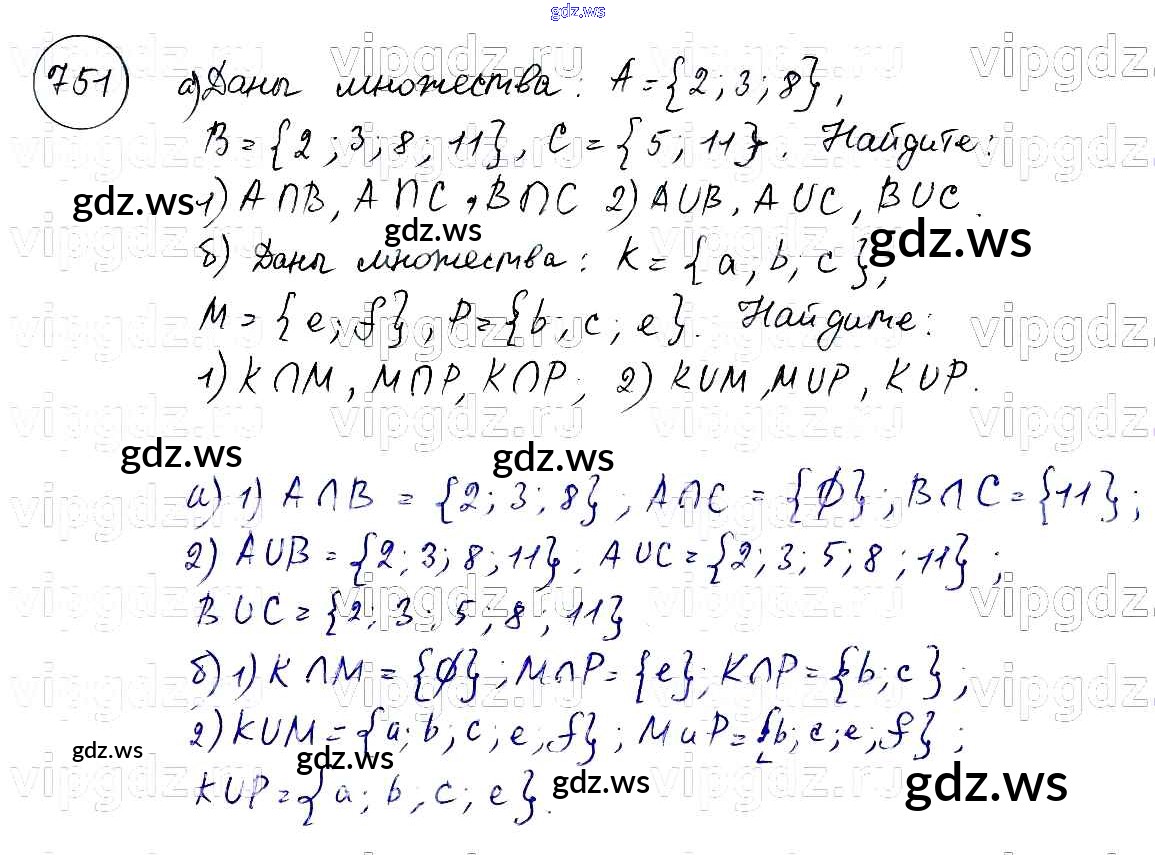 gdz.ws
751 а) Даны множества: A = {2; 3; 8},
B = {2; 3; 8; 11}, C = {5; 11}. Найдите:
gdz.ws 1) A∩B, A∩C, B∩C 2) A∪B, A∪C, B∪C.
gdz.ws gdz.ws
б) Даны множества: K = {a, b, c},
M = {e; f}, P = {b; c; e}. Найдите:
1) K∩M, M∩P, K∩P; 2) K∪M, M∪P, K∪P.
gdz.ws gdz.ws
а) 1) A∩B = {2; 3; 8}; A∩C = {∅}; B∩C = {11};
2) A∪B = {2; 3; 8; 11}; A∪C = {2; 3; 5; 8; 11};
B∪C = {2; 3; 5; 8; 11}
б) 1) K∩M = {∅}; M∩P = {e}; K∩P = {b; c};
2) K∪M = {a; b; c; e; f}; M и P = {b; c; e; f};
gdz.ws gdz.ws gdz.ws gdz.ws
K∪P = {a; b; c; e}.
vipgdz.ru